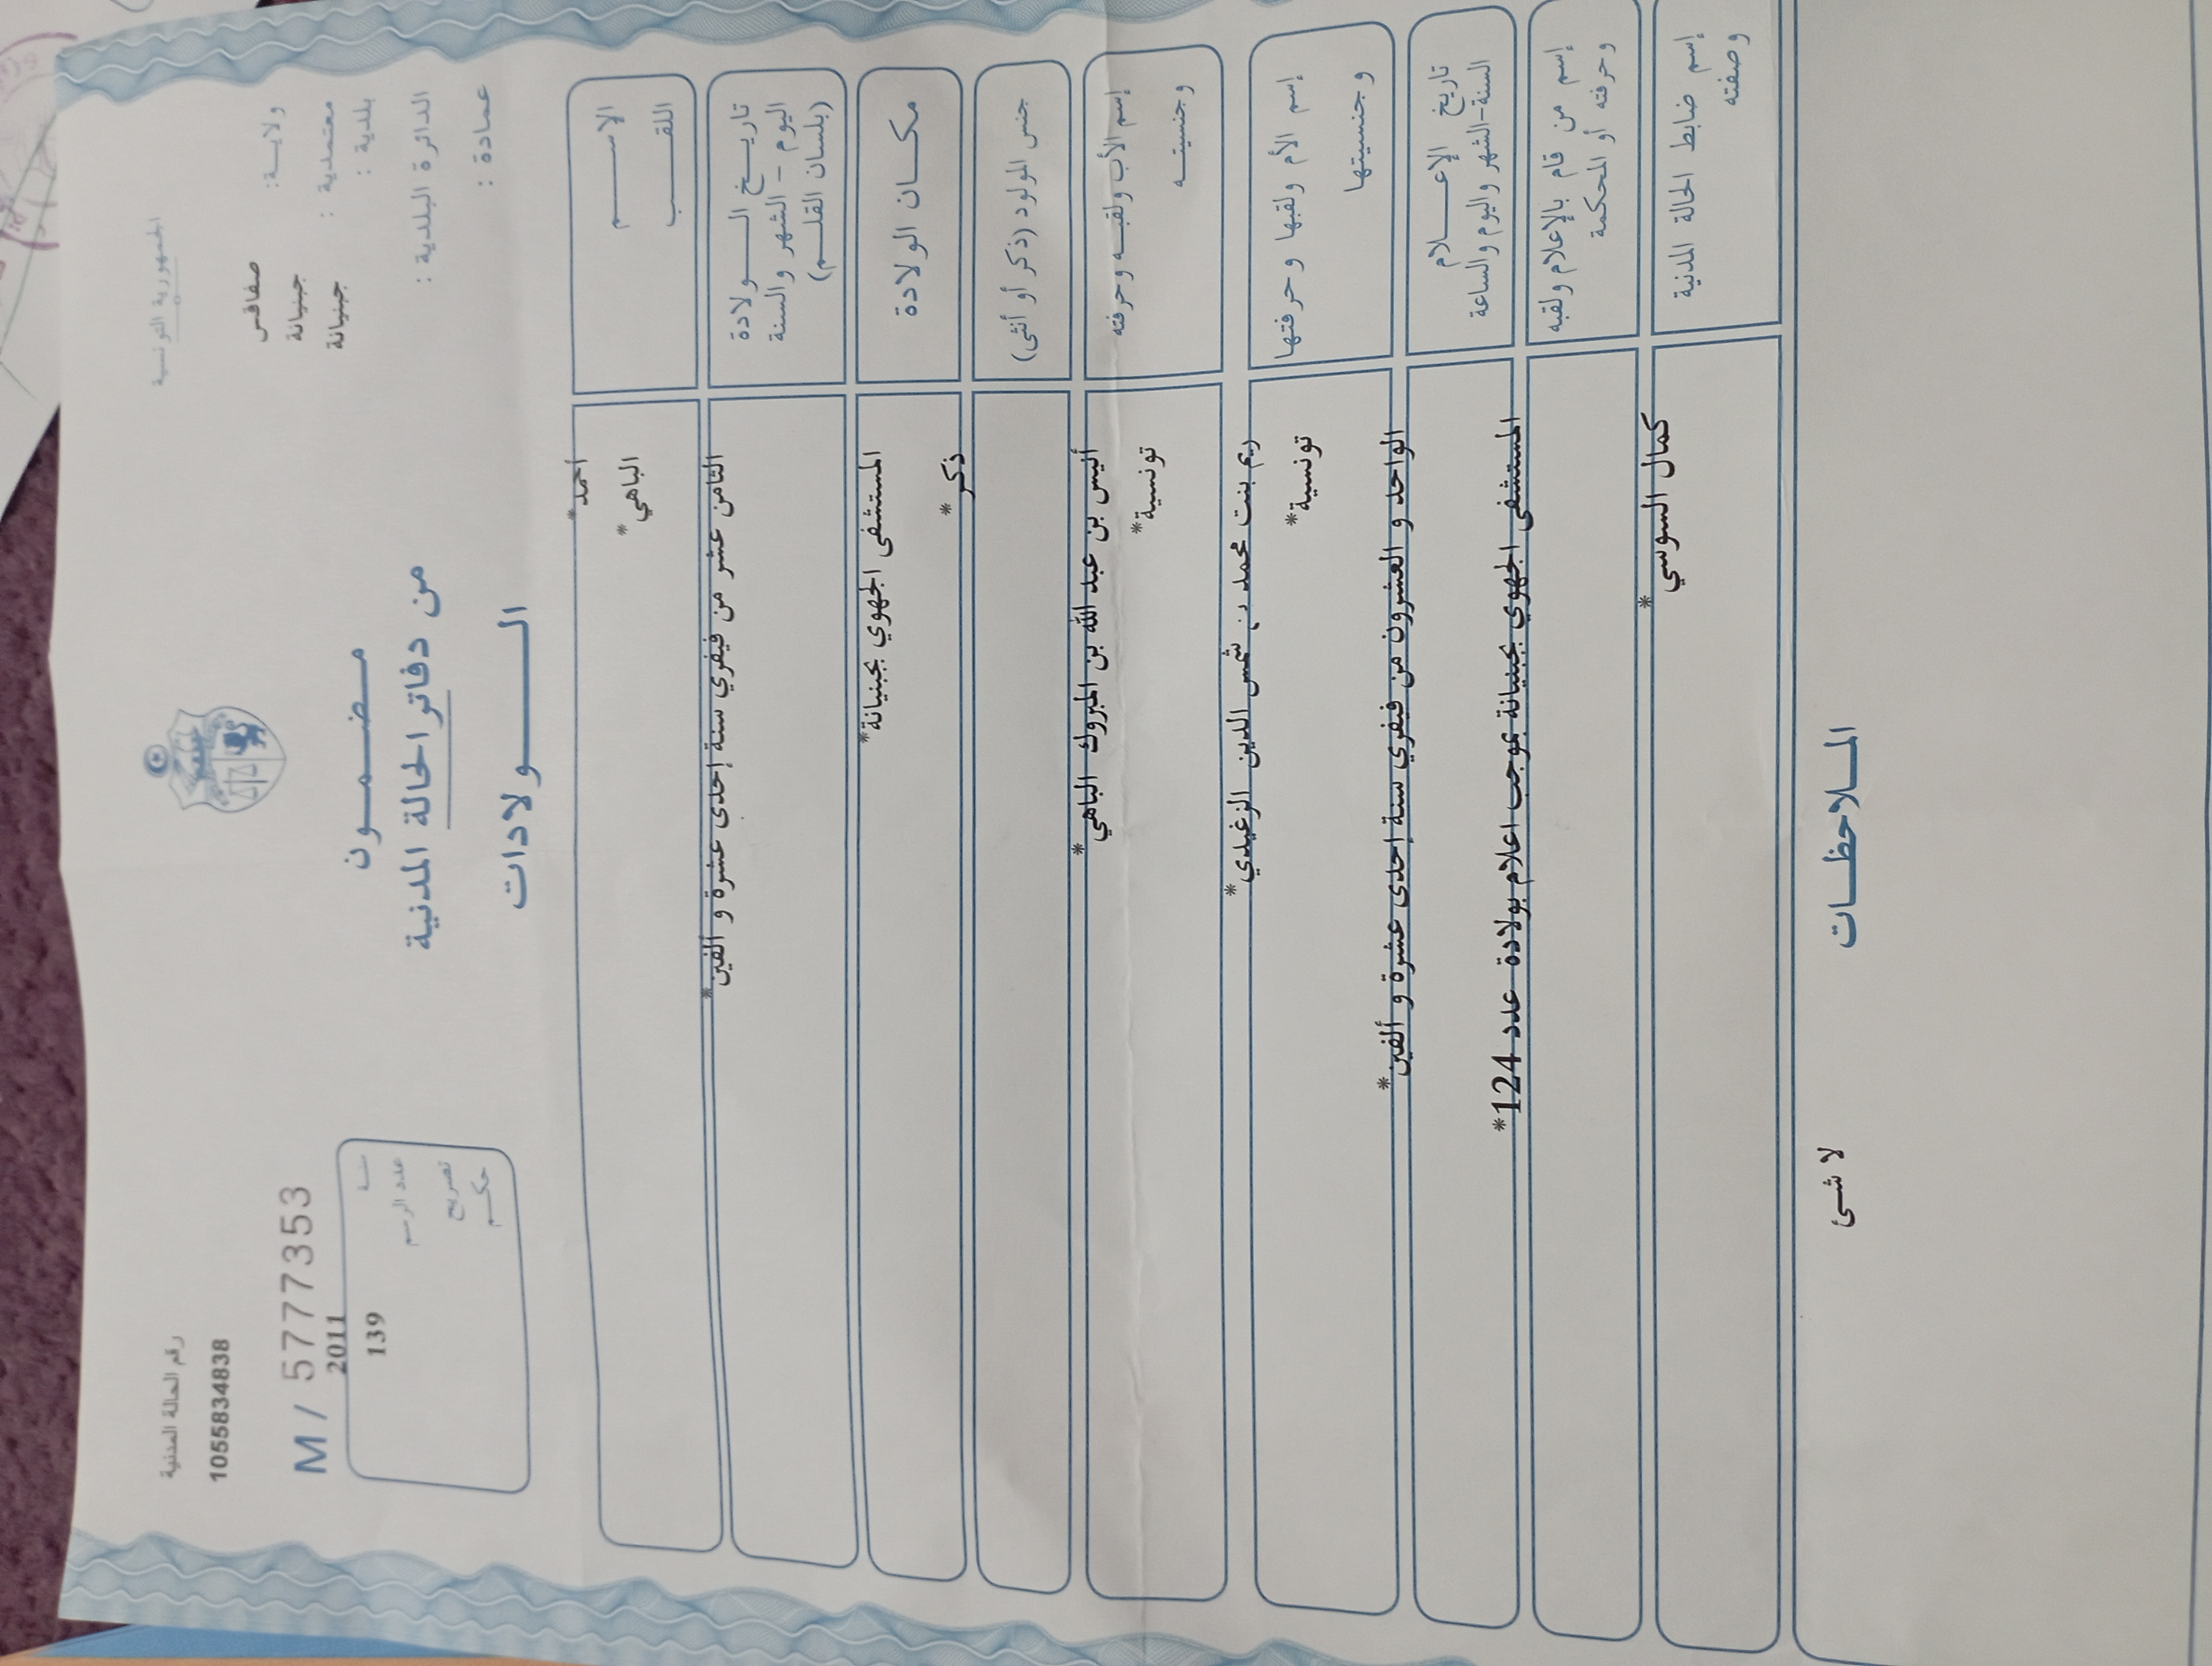 الجمهورية التونسية
رقم الحالة المدنية
1055834838
ولاية: صفاقس
معتمدية : جبنيانة
بلدية : جبنيانة
الدائرة البلدية :
عمادة :
M / 5777353
سنة 2011
عدد الرسم 139
تصريح
حكم
مضمون
من دفاتر الحالة المدنية
الولادات
الاسم
احمد*
اللقب
الباهي*
تاريخ الولادة
اليوم - الشهر والسنة
(بلسان القلم)
الثامن عشر من فيفري سنة إحدى عشرة و ألفين*
مكان الولادة
المستشفى الجهوي بجبنيانة*
جنس المولود (ذكر أو أنثى)
ذكر*
إسم الأب ولقبه وحرفته
وجنسيته
أنيس بن عبد الله بن المبروك الباهي*
تونسية*
إسم الأم ولقبها وحرفتها
وجنسيتها
ريم بنت محمد بن شمس الدين الزغيدي*
تونسية*
تاريخ الإعلام
السنة-الشهر واليوم والساعة
الواحد و العشرون من فيفري سنة إحدى عشرة و ألفين*
إسم من قام بالإعلام ولقبه
وحرفته أو المحكمة
المستشفى الجهوي بجبنيانة بموجب اعلام بولادة عدد 124*
إسم ضابط الحالة المدنية
وصفته
كمال السوسي*
الملاحظات
لا شئ